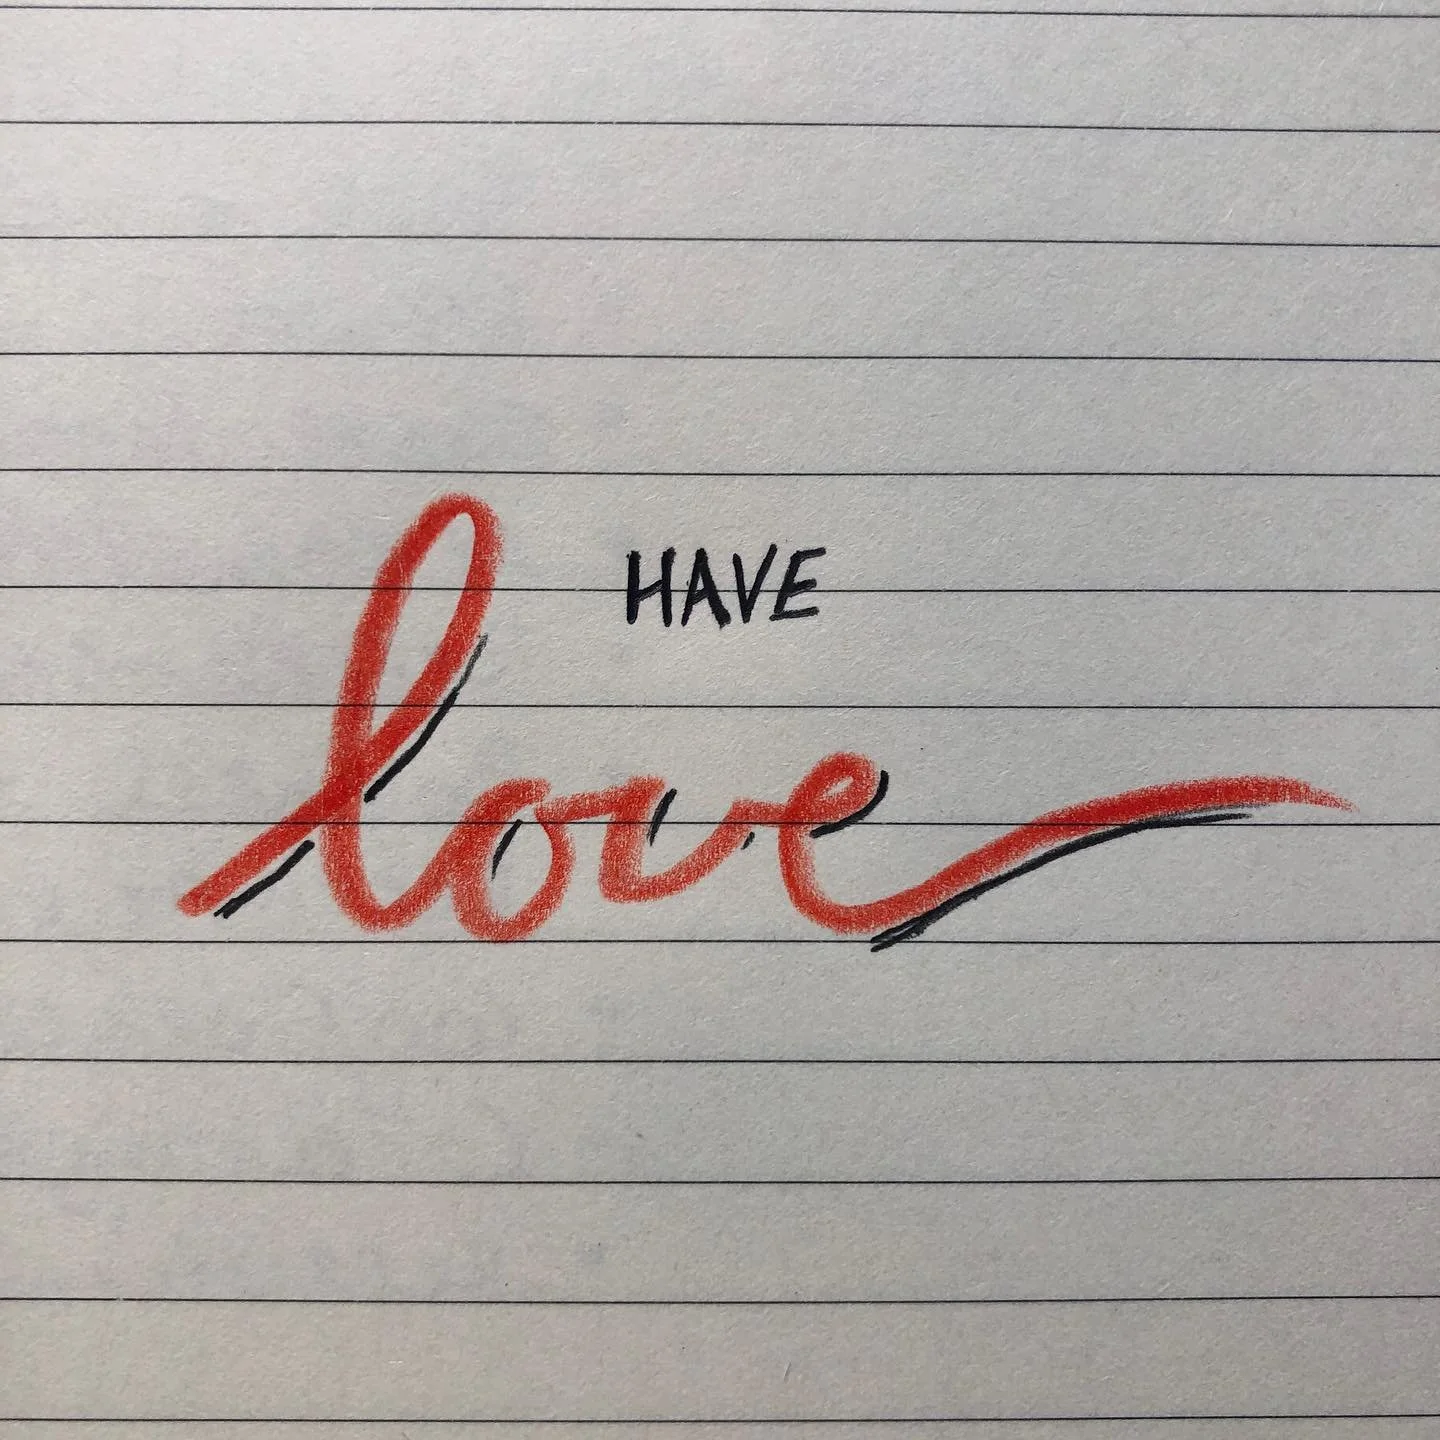 HAVE
love